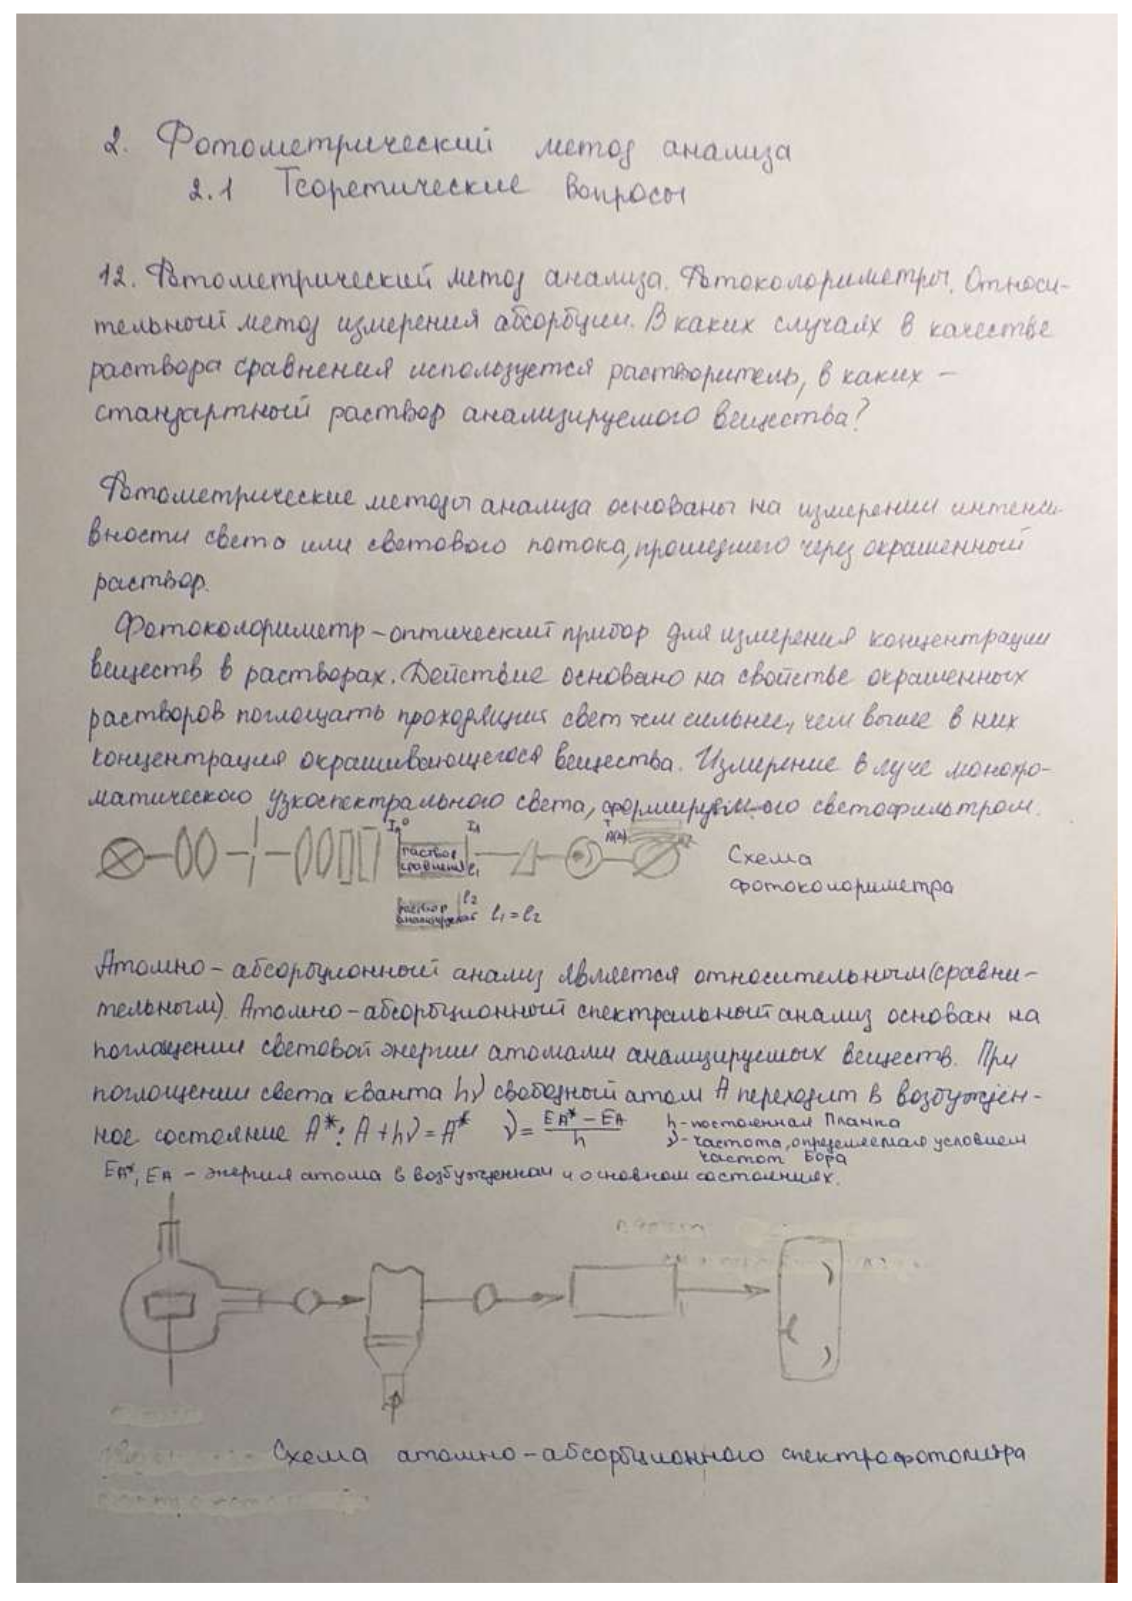 2. Фотометрический метод анализа
2.1 Теоретические вопросы
12. Фотометрический метод анализа. Фотоколориметры. Относи-
тельный метод измерения абсорбции. В каких случаях в качестве
раствора сравнения используется растворитель, в каких –
стандартный раствор анализируемого вещества?
Фотометрические методы анализа основаны на измерении интенси-
вности света или светового потока, прошедшего через окрашенный
раствор.
Фотоколориметр – оптический прибор для измерения концентрации
веществ в растворах. Действие основано на свойстве окрашенных
растворов поглощать проходящий свет тем сильнее, чем выше в них
концентрация окрашивающегося вещества. Измерение в луче монохро-
матического узкоспектрального света, формируемого светофильтром.
раствор
сравнения l₁
Схема
фотоколориметра
раствор l₂
l₁ = l₂
Атомно-абсорбционный анализ является относительным (сравни-
тельным). Атомно-абсорбционный спектральный анализ основан на
поглощении световой энергии атомами анализируемых веществ. При
поглощении света кванта hν свободный атом А переходит в возбуждён-
ное состояние А*: А + hν = А* ν = (EA* – EA)/h h – постоянная Планка
ν – частота, определяемая условием
частот Бора
EA*, EA – энергия атома в возбужденном и основном состояниях.
Схема атомно-абсорбционного спектрофотометра